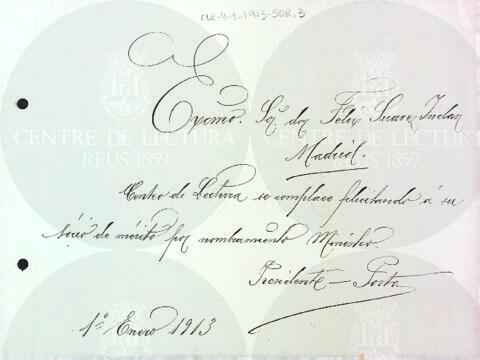 CLE-4-1-1913-SOR.3
Exemo. Sr. don Félix Suarez Inclan
Madrid
Centro de Lectura se complace felicitando á su
sócio de mérito por nombramiento Ministro.
Presidente - Porta
1º Enero 1913
CENTRE DE LECTURA
REUS 1859
CENTRE DE LECTURA
REUS 1859